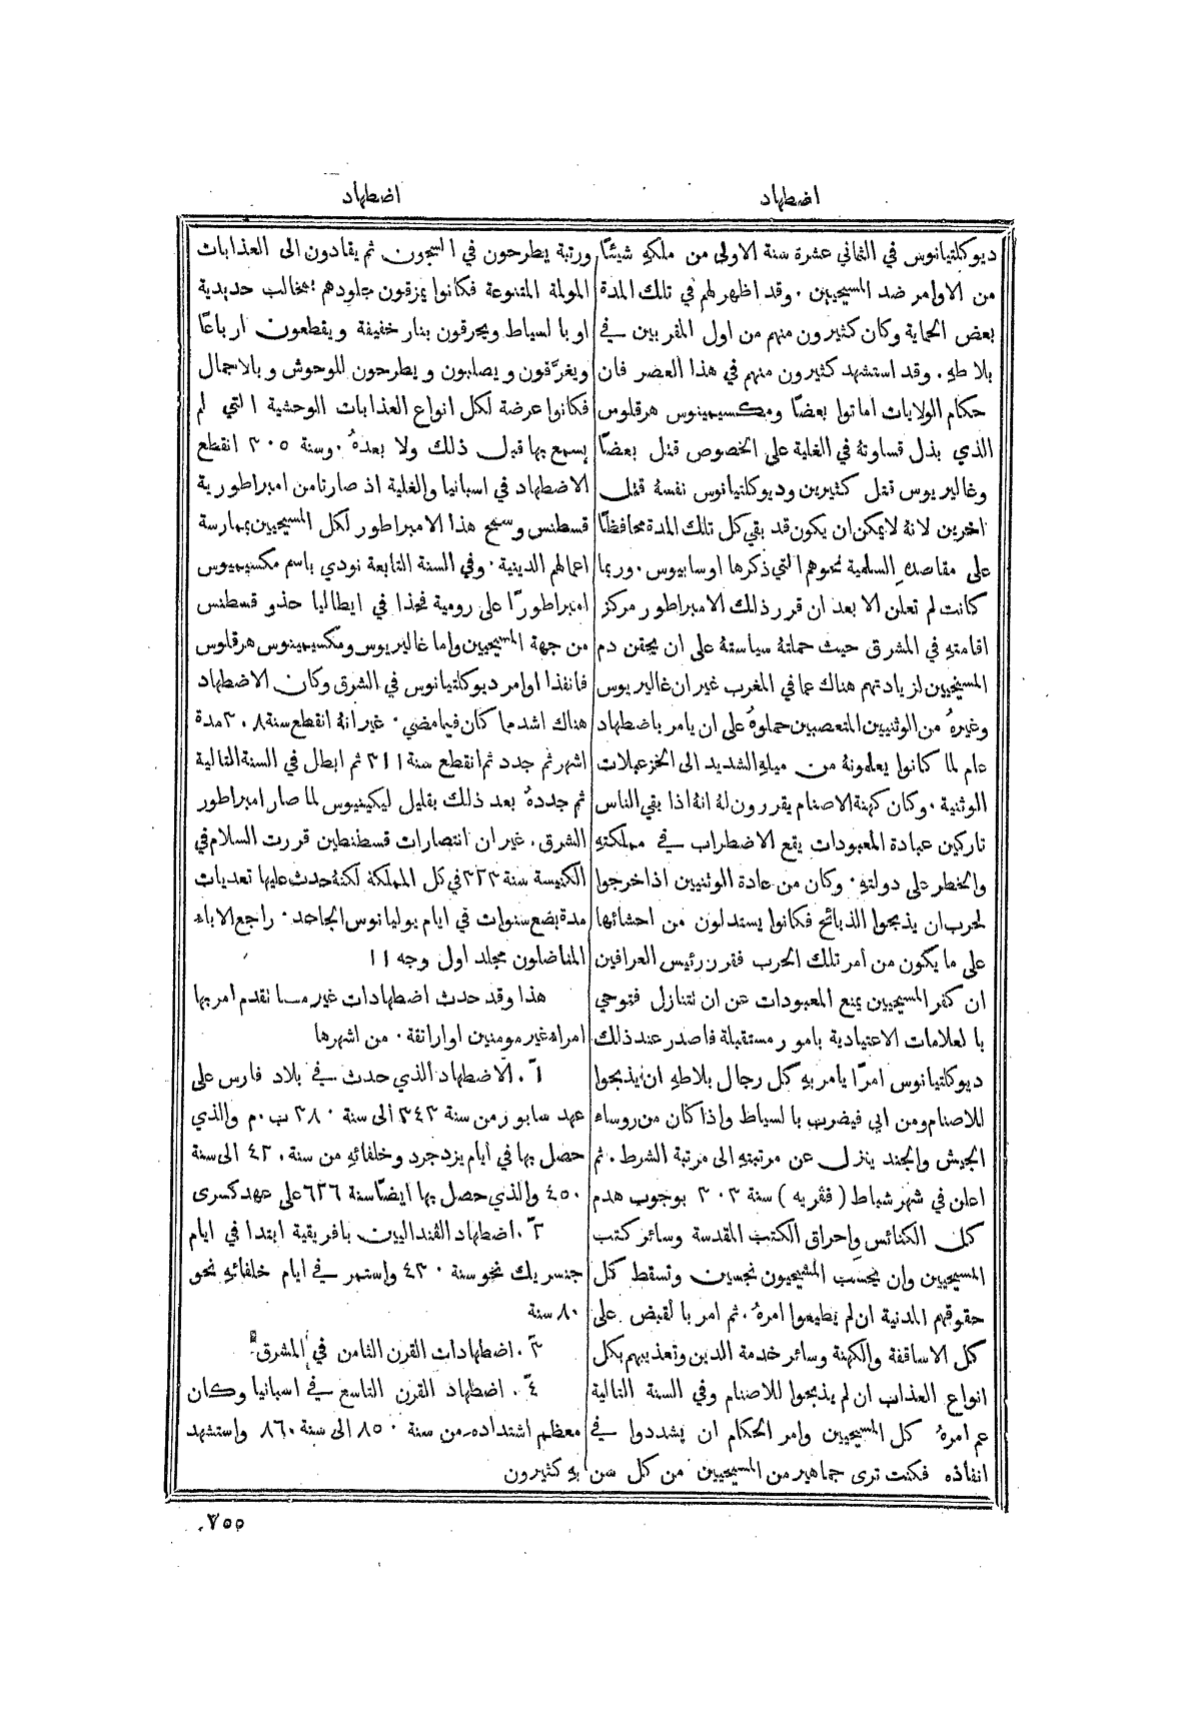 اضطهاد
اضطهاد
ديوكلتيانوس في الثماني عشرة سنة الاولى من ملكهِ شيئًا
من الاوامر ضد المسيحيين . وقد اظهر لهم في تلك المدة
بعض الحماية وكان كثيرون منهم من اول المقربين في
بلاطهِ . وقد استشهد كثيرون منهم في هذا العصر فان
حكام الولايات اماتوا بعضًا ومكسيمينوس هرقلوس
الذي بذل قساوتهُ في الغلية على الخصوص قتل بعضًا
وغاليريوس قتل كثيرين وديوكلتيانوس نفسهُ قتل
اخرين لانهُ لا يمكن ان يكون قد بقي كل تلك المدة محافظًا
على مقاصدهِ السلمية نحوهم التي ذكرها اوسابيوس . وربما
كانت لم تعلن الا بعد ان قرر ذلك الامبراطور مركز
اقامتهِ في المشرق حيث حملتهُ سياستهُ على ان يحقن دم
المسيحيين لزيادتهم هناك عما في المغرب غير ان غاليريوس
وغيرهُ من الوثنيين المتعصبين حملوهُ على ان يامر باضطهاد
عام لما كانوا يعلمونهُ من ميلهِ الشديد الى الخزعبلات
الوثنية . وكان كهنة الاصنام يقررون لهُ انهُ اذا بقي الناس
تاركين عبادة المعبودات يقع الاضطراب في مملكتهِ
والخطر على دولتهِ . وكان من عادة الوثنيين اذا خرجوا
لحرب ان يذبحوا الذبائح فكانوا يستدلون من احشائها
على ما يكون من أمر تلك الحرب فقرر رئيس العرافين
ان كفر المسيحيين يمنع المعبودات عن ان تتنازل فتوحي
بالعلامات الاعتيادية بامور مستقبلة فاصدر عند ذلك
ديوكلتيانوس امرًا يامر بهِ كل رجال بلاطهِ ان يذبحوا
للاصنام ومن ابي فيضرب بالسياط واذا كان من روساء
الجيش والجند ينزل عن مرتبتهِ الى مرتبة الشرط . ثم
اعلن في شهر شباط ( فڤريه ) سنة ٣٠٣ بوجوب هدم
كل الكنائس واحراق الكتب المقدسة وسائر كتب
المسيحيين وان يحسب المسيحيون نجسين وتسقط كل
حقوقهم المدنية ان لم يطيعوا امرهُ . ثم امر بالقبض على
كل الاساقفة والكهنة وسائر خدمة الدين وتعذيبهم بكل
انواع العذاب ان لم يذبحوا للاصنام وفي السنة التالية
عم امرهُ كل المسيحيين وامر الحكام ان يشددوا في
انفاذه فكنت ترى جماهير من المسيحيين من كل سن
ورتبة يطرحون في السجون ثم يقادون الى العذابات
المولمة المتنوعة فكانوا يمزقون جلودهم بمخالب حديدية
او بالسياط ويحرقون بنار خفيفة ويقطعون ارباعًا
ويغرَّقون ويصلبون ويطرحون للوحوش وبالاجمال
فكانوا عرضة لكل انواع العذابات الوحشية التي لم
يسمع بها قبل ذلك ولا بعدهُ . وسنة ٣٠٥ انقطع
الاضطهاد في اسبانيا والغلية اذ صارتا من امبراطورية
قسطنس وسمح هذا الامبراطور لكل المسيحيين بممارسة
اعمالهم الدينية . وفي السنة التابعة نودي باسم مكسيميوس
امبراطورًا على رومية فحذا في ايطاليا حذو قسطنس
من جهة المسيحيين واما غاليريوس ومكسيمينوس هرقلوس
فانفذا اوامر ديوكلتيانوس في الشرق وكان الاضطهاد
هناك اشد مما كان فيما مضى . غير انهُ انقطع سنة ٣٠٨ مدة
اشهر ثم جدد ثم انقطع سنة ٣١١ ثم ابطل في السنة التالية
ثم جددهُ بعد ذلك بقليل ليكينيوس لما صار امبراطور
الشرق . غير ان انتصارات قسطنطين قررت السلام في
الكنيسة سنة ٣٢٣ في كل المملكة لكنهُ حدث عليها تعديات
مدة بضع سنوات في ايام يوليانوس الجاحد . راجع الاباء
المناضلون مجلد اول وجه ١١
هذا وقد حدث اضطهادات غير ما تقدم امر بها
امراء غير مومنين او اراتقة . من اشهرها
١ . الاضطهاد الذي حدث في بلاد فارس على
عهد سابور من سنة ٣٤٣ الى سنة ٣٨٠ ب . م والذي
حصل بها في أيام يزدجرد وخلفائهِ من سنة ٤٢٠ الى سنة
٤٥٠ والذي حصل بها ايضًا سنة ٦٢٦ على عهد كسرى
٢ . اضطهاد الڤنداليين بافريقية ابتدا في ايام
جنسريك نحو سنة ٤٣٠ واستمر في ايام خلفائهِ نحو
٨٠ سنة
٣ . اضطهادات القرن الثامن في المشرق
٤ . اضطهاد القرن التاسع في اسبانيا وكان
معظم اشتداده من سنة ٨٥٠ الى سنة ٨٦٠ واستشهد
بهِ كثيرون
٧٥٥